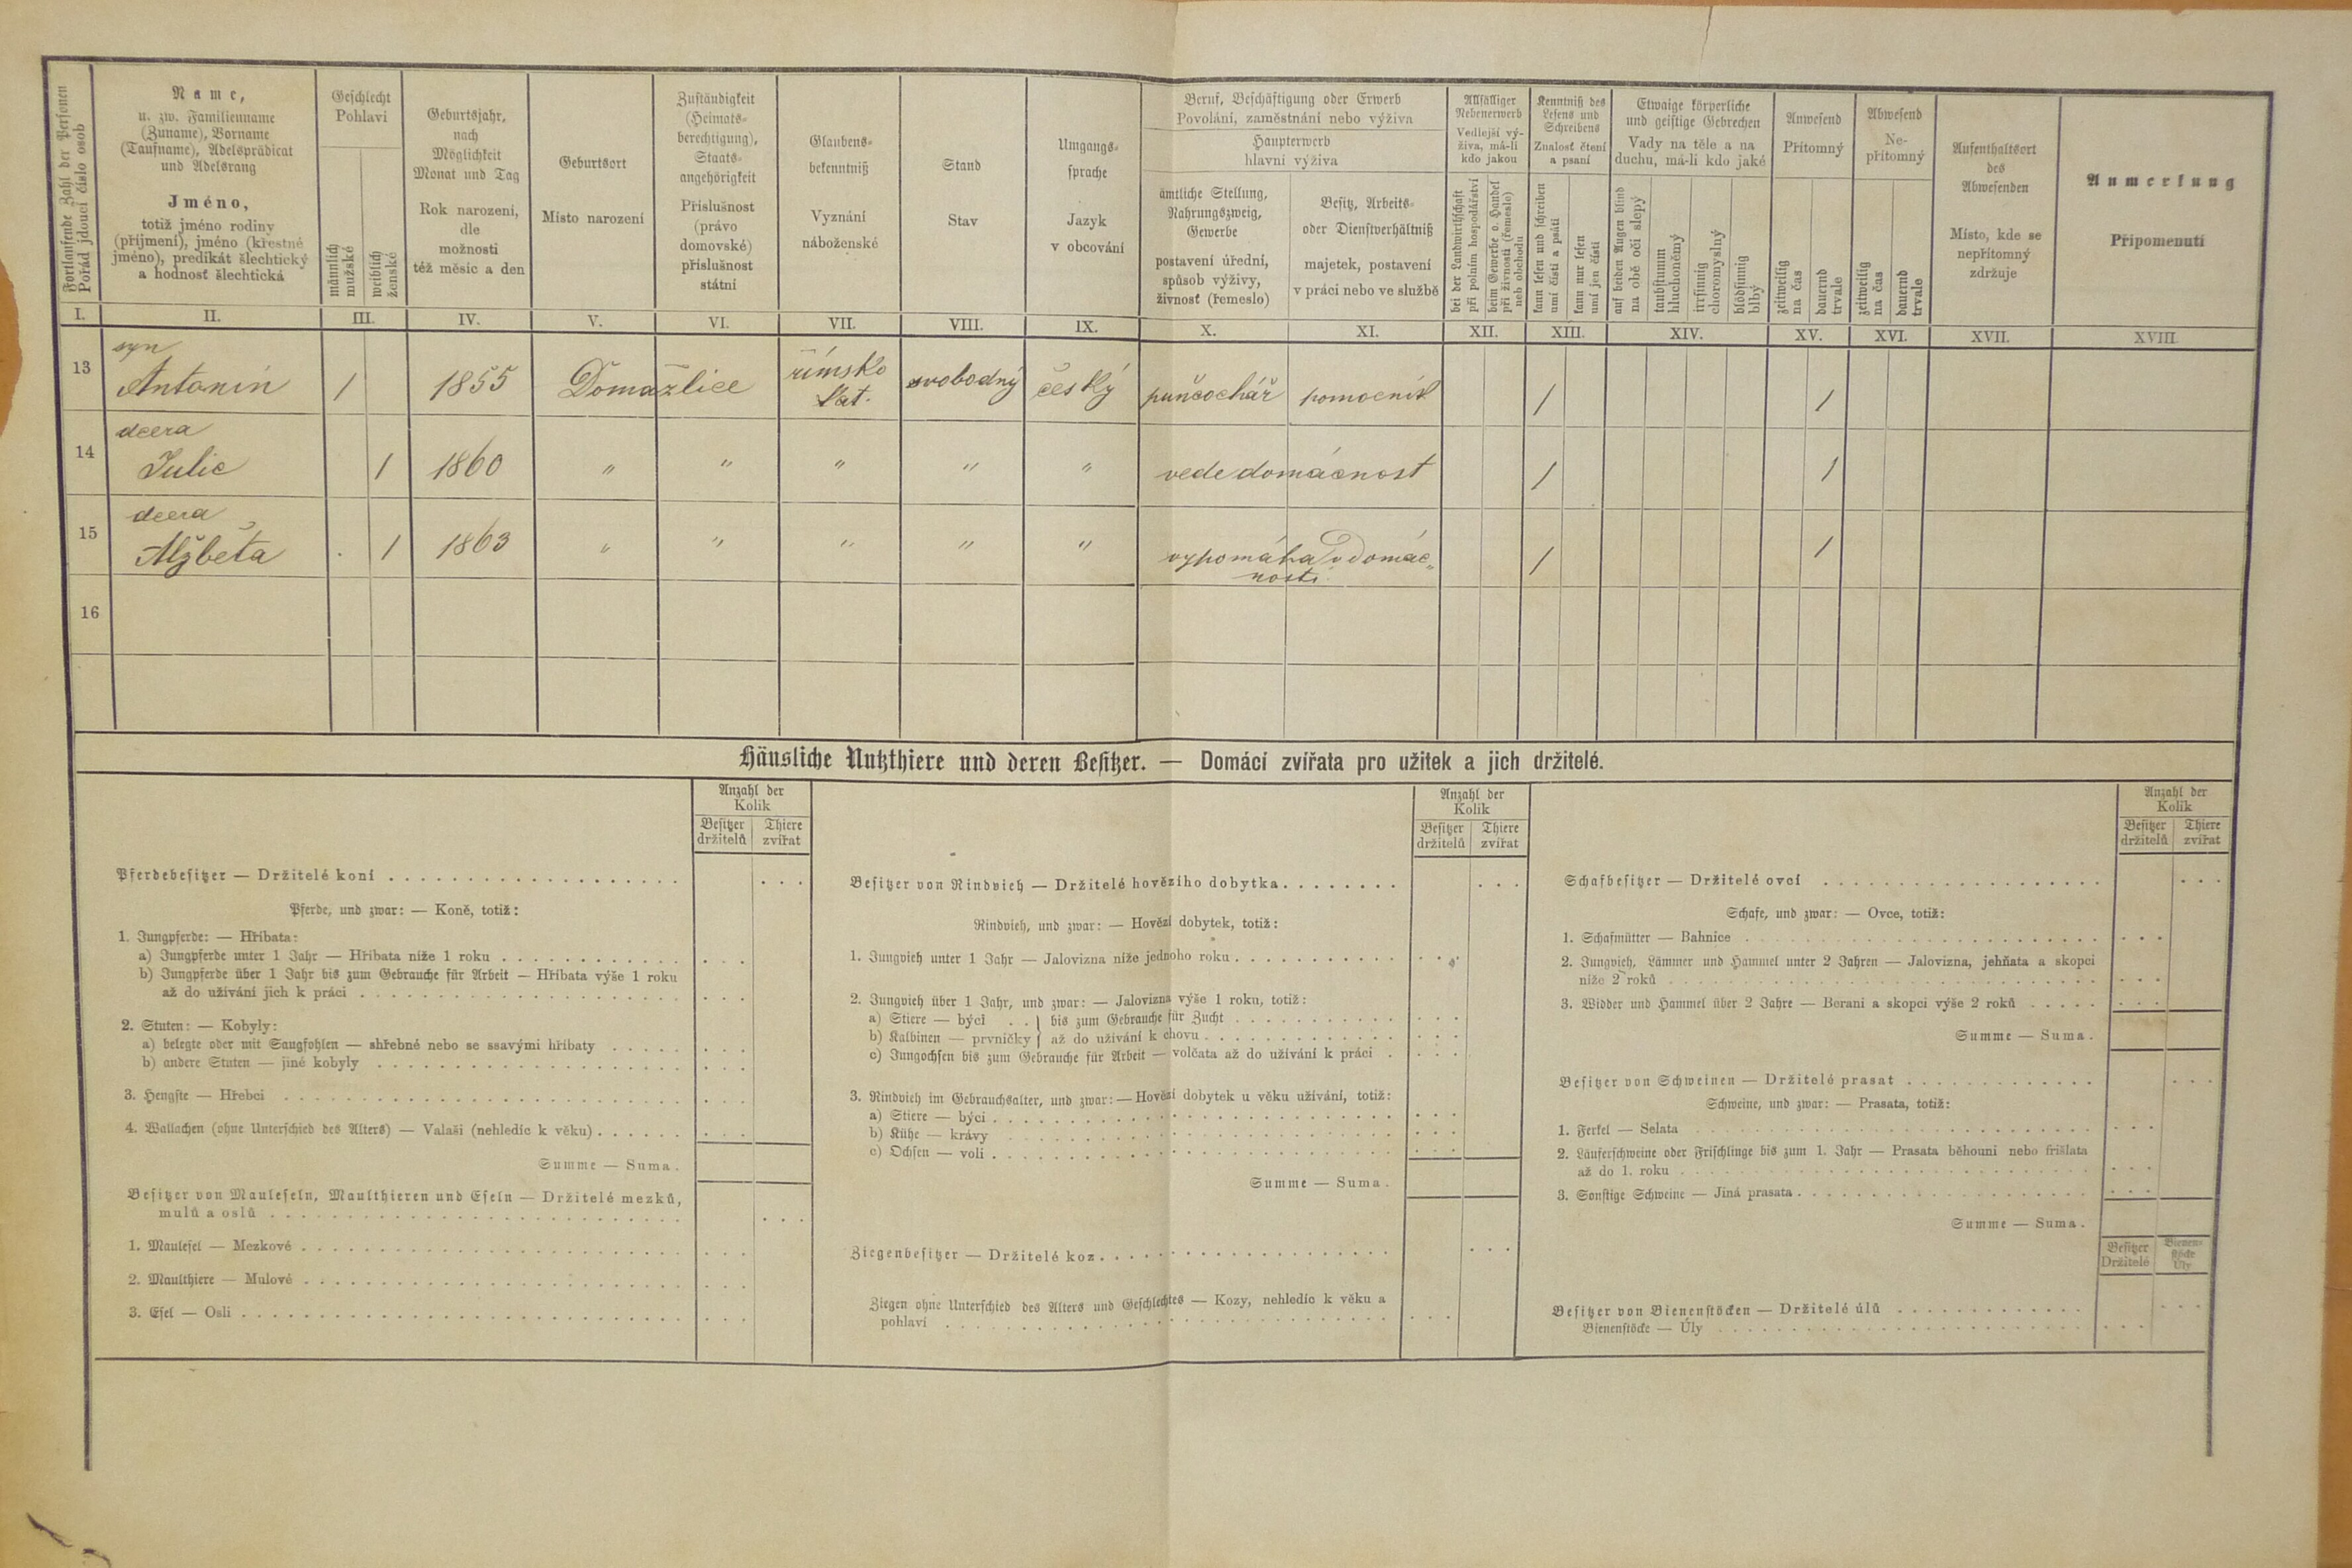 Fortlaufende Zahl der Personen
Pořád jdoucí číslo osob
Name,
u. zw. Familienname
(Zuname), Vorname
(Taufname), Adelsprädicat
und Adelsrang
Jméno,
totiž jméno rodiny
(příjmení), jméno (křestné
jméno), predikát šlechtický
a hodnosť šlechtická
Geschlecht
Pohlaví
männlich
mužské
weiblich
ženské
Geburtsjahr,
nach
Möglichkeit
Monat und Tag
Rok narození,
dle
možnosti
též měsíc a den
Geburtsort
Místo narození
Zuständigkeit
(Heimats-
berechtigung),
Staats-
angehörigkeit
Příslušnost
(právo
domovské)
příslušnost
státní
Glaubens-
bekenntniß
Vyznání
náboženské
Stand
Stav
Umgangs-
sprache
Jazyk
v obcování
Beruf, Beschäftigung oder Erwerb
Povolání, zaměstnání nebo výživa
Haupterwerb
hlavní výživa
ämtliche Stellung,
Nahrungszweig,
Gewerbe
postavení úřední,
spůsob výživy,
živnosť (řemeslo)
Besitz, Arbeits-
oder Dienstverhältniß
majetek, postavení
v práci nebo ve službě
Allfälliger
Nebenerwerb
Vedlejší vý-
živa, má-li
kdo jakou
bei der Landwirthschaft
při polním hospodářství
beim Gewerbe o. Handel
při živnosti (řemesle)
neb obchodu
Kenntniß des
Lesens und
Schreibens
Znalosť čtení
a psaní
kann lesen und schreiben
umí čísti a psáti
kann nur lesen
umí jen čísti
Etwaige körperliche
und geistige Gebrechen
Vady na těle a na
duchu, má-li kdo jaké
auf beiden Augen blind
na obě oči slepý
taubstumm
hluchoněmý
irrsinnig
choromyslný
blödsinnig
blbý
Anwesend
Přítomný
zeitweilig
na čas
dauernd
trvale
Abwesend
Ne-
přítomný
zeitweilig
na čas
dauernd
trvale
Aufenthaltsort
des
Abwesenden
Místo, kde se
nepřítomný
zdržuje
Anmerkung
Připomenutí
I. II. III. IV. V. VI. VII. VIII. IX. X. XI. XII. XIII. XIV. XV. XVI. XVII. XVIII.
syn
13 Antonín / 1855 Domažlice římsko kat. svobodný český punčochář pomocník / /
dcera
14 Julie / 1860 " " " " " vede domácnost / /
dcera
15 Alžběta . / 1863 " " " " " vypomáhá v domác„
nosti / /
16
Häusliche Nutzthiere und deren Besitzer. — Domácí zvířata pro užitek a jich držitelé.
Anzahl der
Kolik
Besitzer Thiere
držitelů zvířat
Pferdebesitzer — Držitelé koní
Pferde, und zwar: — Koně, totiž:
1. Jungpferde: — Hříbata:
a) Jungpferde unter 1 Jahr — Hříbata níže 1 roku
b) Jungpferde über 1 Jahr bis zum Gebrauche für Arbeit — Hříbata výše 1 roku
až do užívání jich k práci
2. Stuten: — Kobyly:
a) belegte oder mit Saugfohlen — shřebné nebo se ssavými hříbaty
b) andere Stuten — jiné kobyly
3. Hengste — Hřebci
4. Wallachen (ohne Unterschied des Alters) — Valaši (nehledíc k věku)
Summe — Suma.
Besitzer von Mauleseln, Maulthieren und Eseln — Držitelé mezků,
mulů a oslů
1. Maulesel — Mezkové
2. Maulthiere — Mulové
3. Esel — Osli
Anzahl der
Kolik
Besitzer Thiere
držitelů zvířat
Besitzer von Rindvieh — Držitelé hovězího dobytka
Rindvieh, und zwar: — Hovězí dobytek, totiž:
1. Jungvieh unter 1 Jahr — Jalovizna níže jednoho roku
2. Jungvieh über 1 Jahr, und zwar: — Jalovizna výše 1 roku, totiž:
a) Stiere — býci . . } bis zum Gebrauche für Zucht
b) Kalbinen — prvničky } až do užívání k chovu
c) Jungochsen bis zum Gebrauche für Arbeit — volčata až do užívání k práci
3. Rindvieh im Gebrauchsalter, und zwar: — Hovězí dobytek u věku užívání, totiž:
a) Stiere — býci
b) Kühe — krávy
c) Ochsen — voli
Summe — Suma.
Ziegenbesitzer — Držitelé koz
Ziegen ohne Unterschied des Alters und Geschlechtes — Kozy, nehledíc k věku a
pohlaví
Anzahl der
Kolik
Besitzer Thiere
držitelů zvířat
Schafbesitzer — Držitelé ovcí
Schafe, und zwar: — Ovce, totiž:
1. Schafmütter — Bahnice
2. Jungvieh, Lämmer und Hammel unter 2 Jahren — Jalovizna, jehňata a skopci
níže 2 roků
3. Widder und Hammel über 2 Jahre — Berani a skopci výše 2 roků
Summe — Suma.
Besitzer von Schweinen — Držitelé prasat
Schweine, und zwar: — Prasata, totiž:
1. Ferkel — Selata
2. Läuferschweine oder Frischlinge bis zum 1. Jahr — Prasata běhouni nebo frišlata
až do 1. roku
3. Sonstige Schweine — Jiná prasata
Summe — Suma.
Besitzer
Držitelé
Bienen-
stöcke
Úly
Besitzer von Bienenstöcken — Držitelé úlů
Bienenstöcke — Úly